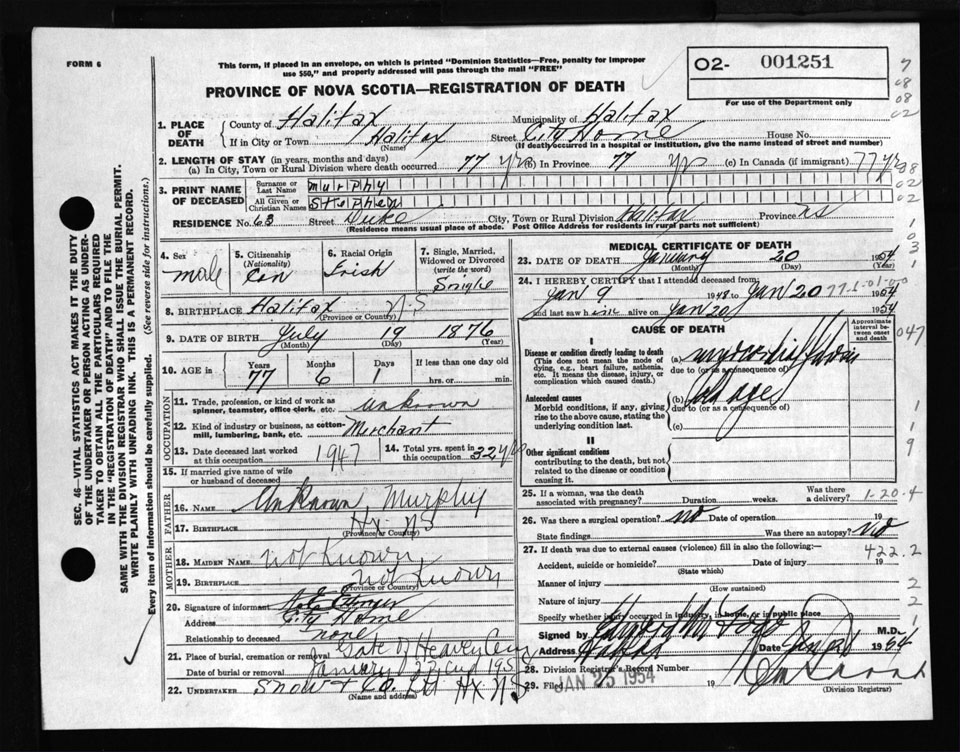 FORM 6
This form, if placed in an envelope, on which is printed "Dominion Statistics—Free, penalty for improper
use $50," and properly addressed will pass through the mail "FREE"
O2- 001251
For use of the Department only
PROVINCE OF NOVA SCOTIA—REGISTRATION OF DEATH
1. PLACE OF DEATH
County of Halifax Municipality of Halifax
If in City or Town Halifax (Name) Street City Home House No.
(If death occurred in a hospital or institution, give the name instead of street and number)
2. LENGTH OF STAY (in years, months and days)
(a) In City, Town or Rural Division where death occurred 77 yrs (b) In Province 77 yrs (c) In Canada (if immigrant) 77 yrs
3. PRINT NAME OF DECEASED
Surname or Last Name Murphy
All Given or Christian Names Stephen
RESIDENCE No. 63 Street Duke City, Town or Rural Division Halifax Province NS
(Residence means usual place of abode. Post Office Address for residents in rural parts not sufficient)
4. Sex male
5. Citizenship (Nationality) Can
6. Racial Origin Irish
7. Single, Married, Widowed or Divorced (write the word) Single
8. BIRTHPLACE Halifax N.S
(Province or Country)
9. DATE OF BIRTH July 19 1876
(Month) (Day) (Year)
10. AGE in Years 77 Months 6 Days 1 If less than one day old
hrs. or min.
OCCUPATION
11. Trade, profession, or kind of work as
spinner, teamster, office clerk, etc. unknown
12. Kind of industry or business, as cotton-
mill, lumbering, bank, etc. Merchant
13. Date deceased last worked
at this occupation 1947
14. Total yrs. spent in
this occupation 32 yrs
15. If married give name of wife
or husband of deceased
FATHER
16. NAME Unknown Murphy
17. BIRTHPLACE Hx. NS
(Province or Country)
MOTHER
18. MAIDEN NAME not known
19. BIRTHPLACE not known
(Province or Country)
20. Signature of informant
Address City Home
Relationship to deceased none
21. Place of burial, cremation or removal Gate of Heaven Cem
Date of burial or removal January 22nd 195
22. UNDERTAKER Snow & Co. Ltd Hx. NS
(Name and address)
MEDICAL CERTIFICATE OF DEATH
23. DATE OF DEATH January 20 1954
(Month) (Day) (Year)
24. I HEREBY CERTIFY that I attended deceased from
Jan 9 1948 to Jan 20 1954
and last saw him alive on Jan 20 1954
CAUSE OF DEATH
Approximate interval between onset and death
I
Disease or condition directly leading to death
(This does not mean the mode of
dying, e.g., heart failure, asthenia,
etc. It means the disease, injury, or
complication which caused death.)
(a) myocardial
due to (or as a consequence of)
Antecedent causes
Morbid conditions, if any, giving
rise to the above cause, stating the
underlying condition last.
(b) old age
due to (or as a consequence of)
(c)
II
Other significant conditions
contributing to the death, but not
related to the disease or condition
causing it.
25. If a woman, was the death
associated with pregnancy? Duration weeks. Was there
a delivery?
1-20-4
26. Was there a surgical operation? no Date of operation 19
State findings Was there an autopsy? no
27. If death was due to external causes (violence) fill in also the following:—
422.2
Accident, suicide or homicide? Date of injury 19
(State which)
Manner of injury
(How sustained)
Nature of injury
Specify whether injury occurred in industry, in home, or in public place
Signed by M.D.
Address Halifax Date Jan 19 54
28. Division Registrar's Record Number
29. Filed JAN 25 1954 19
(Division Registrar)
SEC. 46—VITAL STATISTICS ACT MAKES IT THE DUTY
OF THE UNDERTAKER OR PERSON ACTING AS UNDER-
TAKER TO OBTAIN ALL THE PARTICULARS REQUIRED
IN THE "REGISTRATION OF DEATH" AND TO FILE THE
SAME WITH THE DIVISION REGISTRAR WHO SHALL ISSUE THE BURIAL PERMIT.
WRITE PLAINLY WITH UNFADING INK. THIS IS A PERMANENT RECORD.
Every item of information should be carefully supplied. (See reverse side for instructions.)